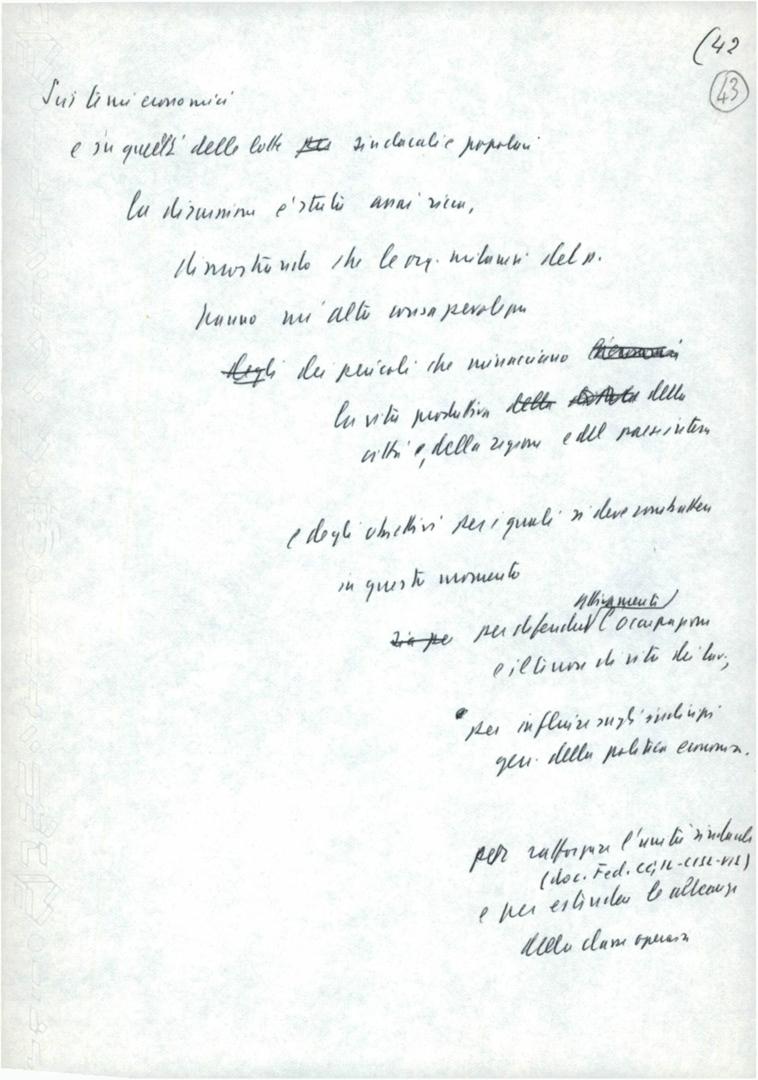 (42
43
Sui temi economici
e su quelli delle lotte per sindacali e popolari
la discussione è stata assai ricca,
dimostrando che le org. milanesi del p.
hanno un'alta consapevolezza
degli dei pericoli che minacciano
la vita produttiva della della
città e, della regione e del paese intero
e degli obiettivi per i quali si deve combattere
in questo momento
sia pe per difendere l'occupazione
e il tenore di vita dei lav.,
per influire sugli indirizzi
gen. della politica econom.
per rafforzare l'unità sindacale
(doc. Fed. CGIL-CISL-UIL)
e per estendere le alleanze
della classe operaia